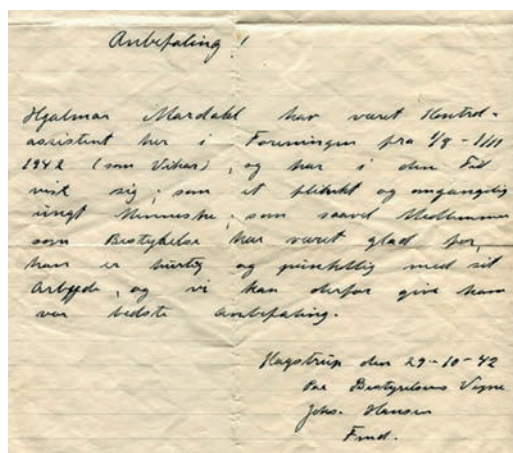 Anbefaling!
Hjalmar Mardahl har været Kontrol-
assistent her i Foreningen fra 1/8 - 1/11
1942 (som Vikar), og har i den Tid
vist sig, som et flinkt og omgængelig
ungt Menneske, som saavel Medlemmer
som Bestyrelse har været glad for,
han er hurtig og punktlig med sit
Arbejde, og vi kan derfor give ham
vor bedste Anbefaling.
Hagstrup den 29-10-42
Paa Bestyrelsens Vegne
Johs. Hansen
Fmd.